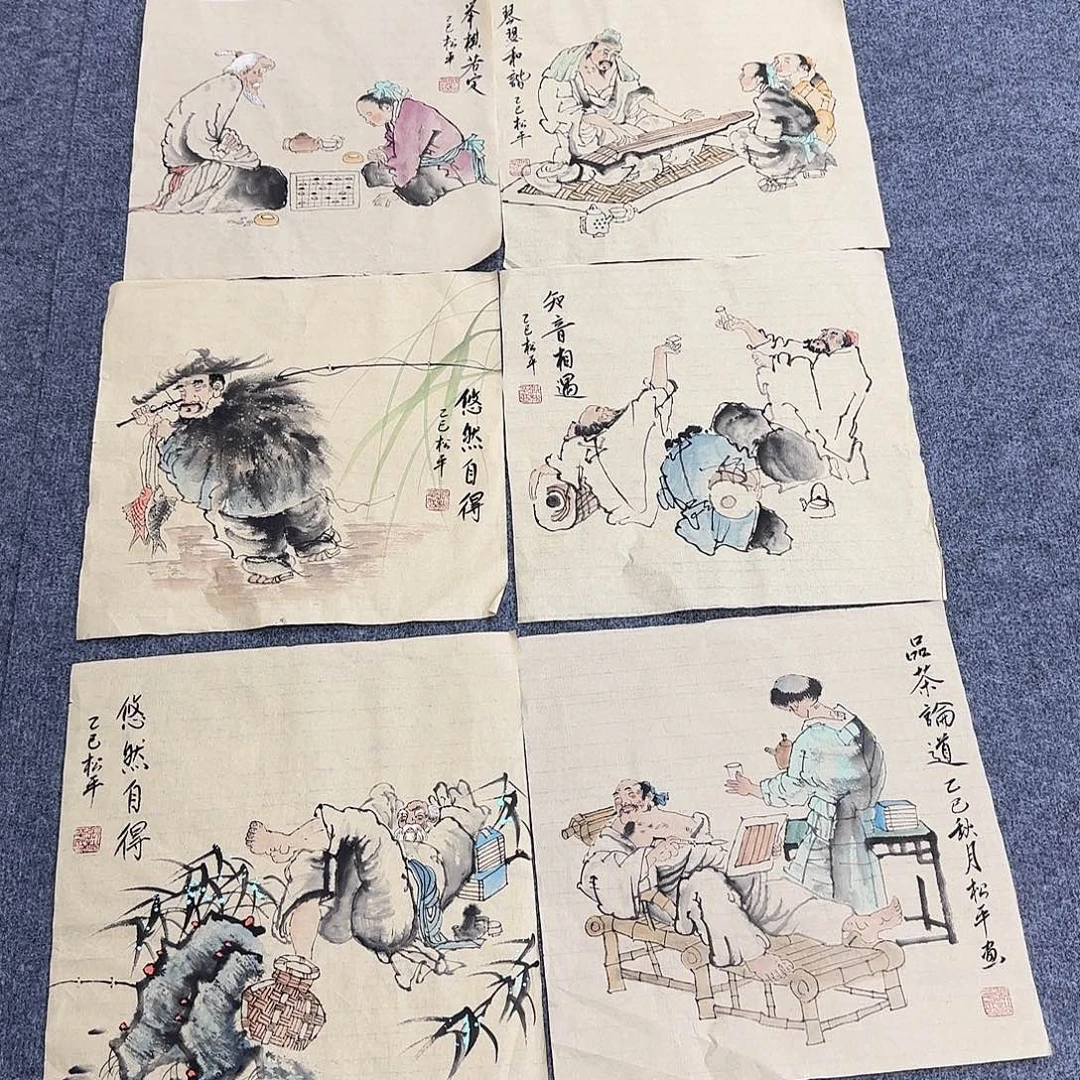 举棋若定
乙巳松平
琴瑟和谐
乙巳松平
悠然自得
乙巳松平
知音相遇
乙巳松平
悠然自得
乙巳松平
品茶論道
乙巳秋月松平画